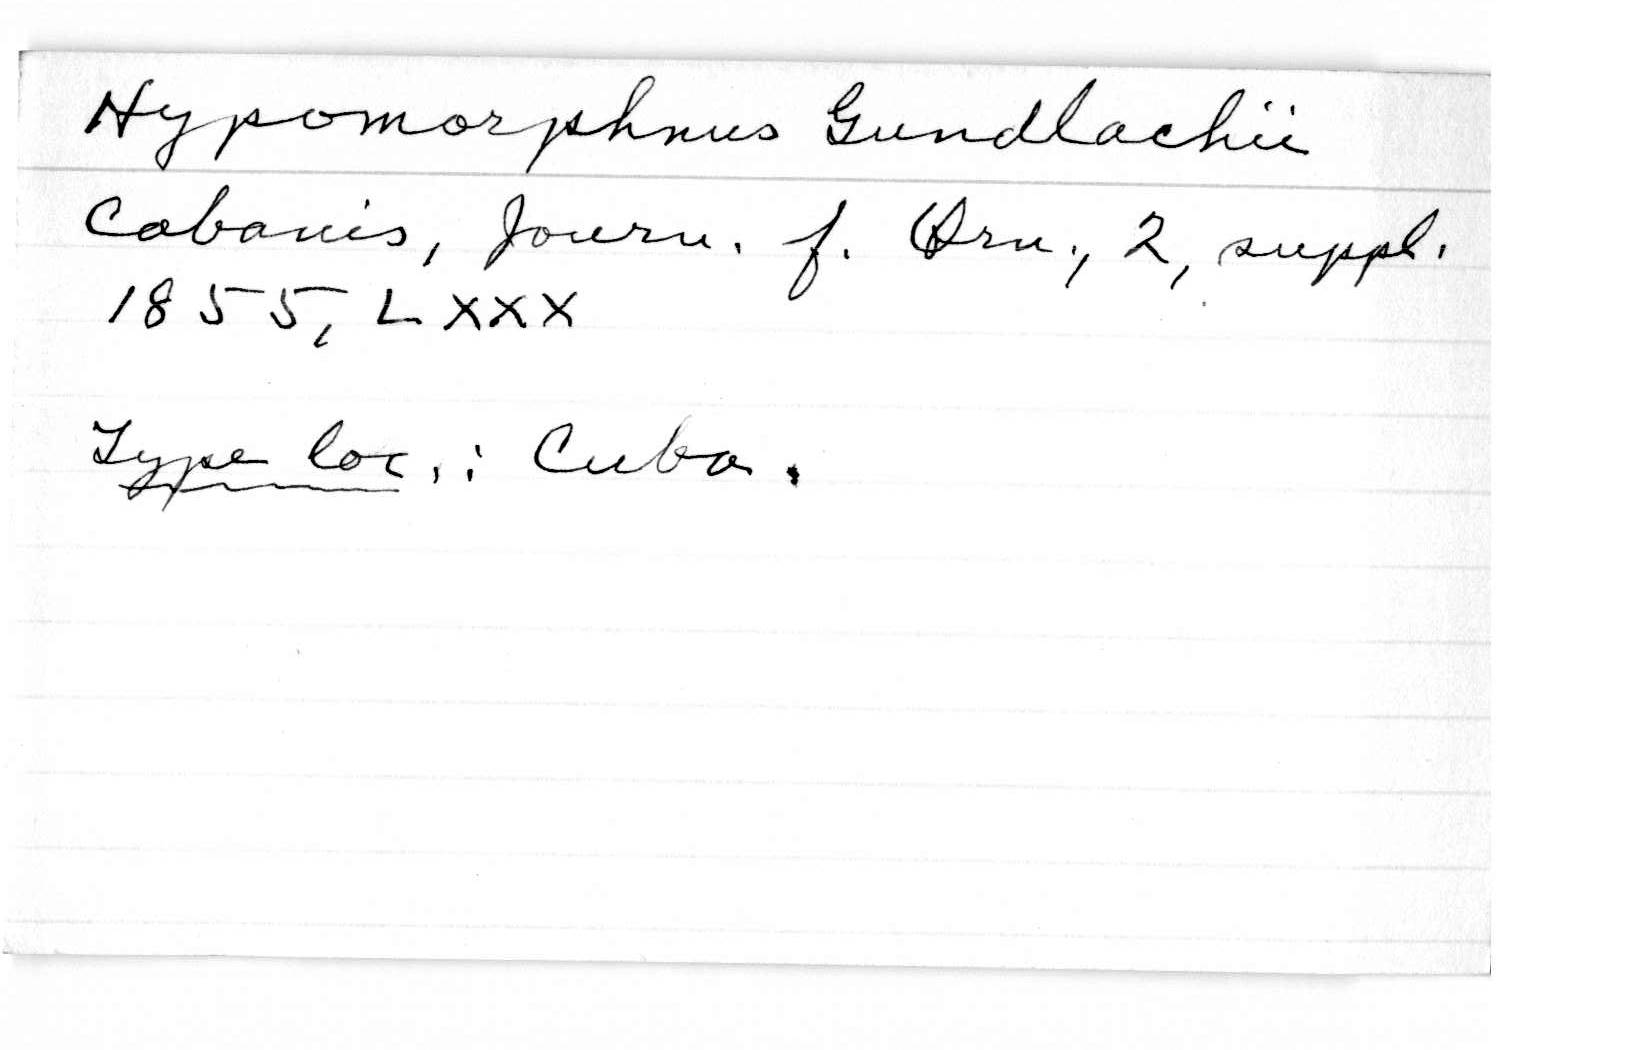 Hypomorphnus Gundlachii
Cabanis, Journ. f. Orn., 2, suppl.
1855, LXXX
Type loc.: Cuba.